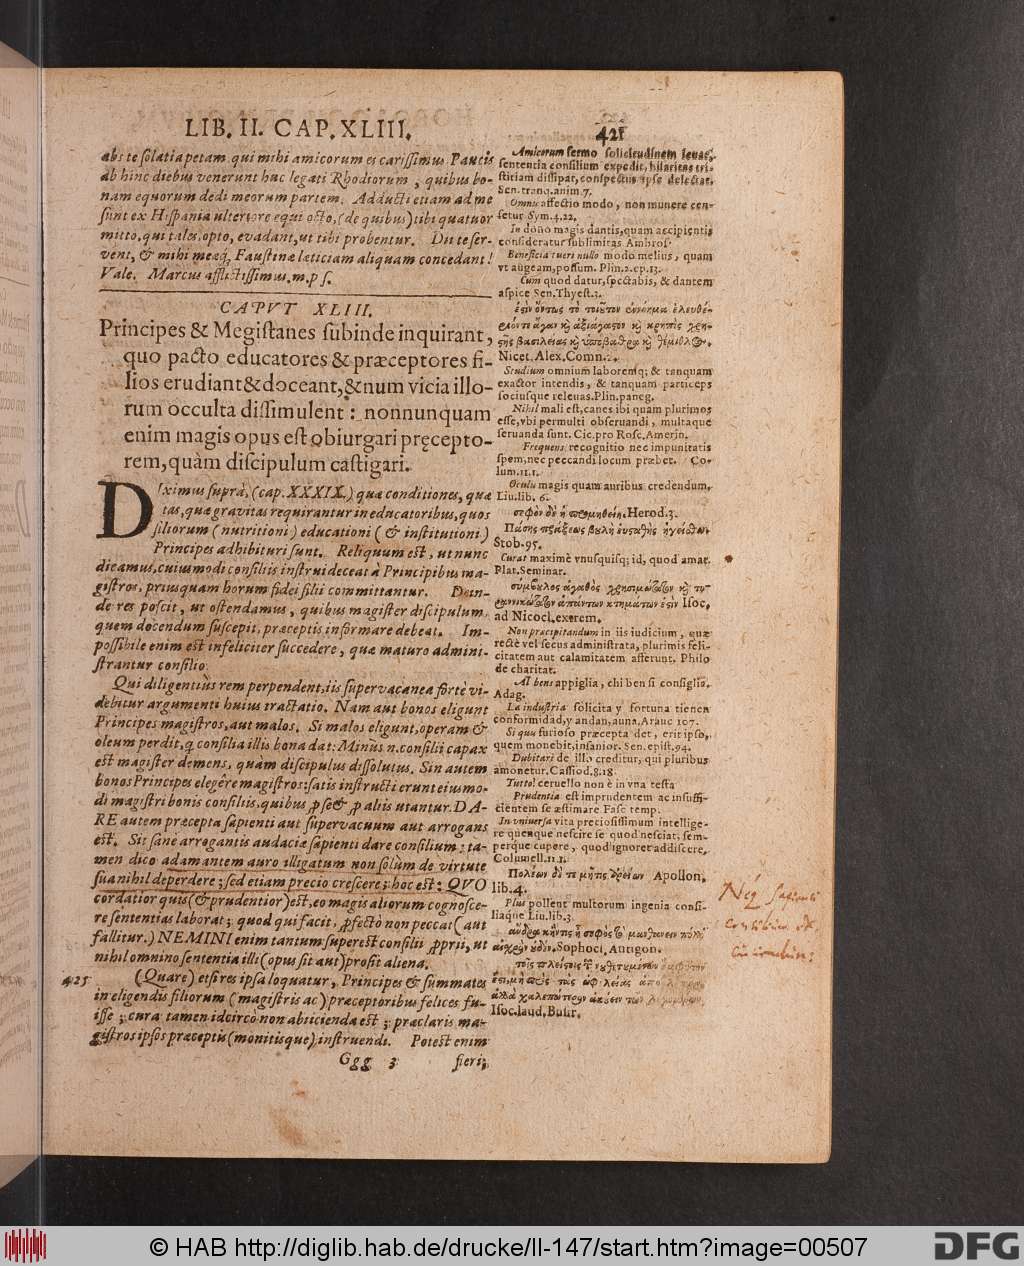 LIB. II. CAP. XLIII. 421
abs te solatia petam qui mihi amicorum es carissimus Paucis
ab hinc diebus venerunt huc legati Rhodiorum, quibus bo-
nam equorum dedi meorum partem. Adducti etiam ad me
sunt ex Hispania ulteriore equi octo, (de quibus) tibi quatuor
mitto, qui tales, opto, evadant, ut tibi probentur. Dii te ser-
vent, & mihi meæq́; Faustinæ læticiam aliquam concedant!
Vale. Marcus afflictissimus. m. p s.
CAPVT XLIII.
Principes & Megistanes subinde inquirant,
quo pacto educatores & præceptores fi-
lios erudiant & doceant, & num vicia illo-
rum occulta dissimulent: nonnunquam
enim magis opus est obiurgari pręcepto-
rem, quàm discipulum castigari.
DIximus suprà, (cap. XXXIX.) quæ conditiones, quæ
tas, quæ gravitas requirantur in educatoribus, quos
filiorum (nutritioni) educationi (& institutioni)
Principes adhibituri sunt. Reliquum est, ut nunc
dicamus, cuiusmodi consiliis instrui deceat à Principibus ma-
gistros, priusquam horum fidei filii committantur. Dein-
de res poscit, ut ostendamus, quibus magister discipulum,
quem docendum suscepit, præceptis informare debeat. Im-
possibile enim est infeliciter succedere, quæ maturo admini-
strantur consilio.
Qui diligentiùs rem perpendent, iis supervacanea fortè vi-
debitur argumenti huius tractatio. Nam aut bonos eligunt
Principes magistros, aut malos. Si malos eligunt, operam &
oleum perdit, q consilia illis bona dat: Minùs n. consilii capax
est magister demens, quàm discipulus dissolutus. Sin autem
bonos Principes elegêre magistros: satis instructi erunt eiusmo-
di magistri bonis consiliis, quibus ꝓ se & ꝓ aliis utantur. DA-
RE autem præcepta sapienti aut supervacuum aut arrogans
est. Sit sanè arrogantis audaciæ sapienti dare consilium: ta-
men dico adamantem auro illigatum non solùm de virtute
sua nihil deperdere; sed etiam precio crescere; hoc est: QVO
cordatior quis (& prudentior) est, eo magis aliorum cognosce-
re sententias laborat; quod qui facit, ꝓfectò non peccat (aut
fallitur.) NEMINI enim tantum superest consilii ꝓprii, ut
nihil omnino sententia illi (opus sit aut) prosit aliena.
425 (Quare) etsi res ipsa loquatur, Principes & summates
in eligendis filiorum (magistris ac) præceptoribus felices fu-
isse; cura tamen idcircò non abiicienda est; præclaris ma-
gistros ipsos præceptis (monitisque) instruendi. Potest enim
Ggg 3 fieri;
Amicorum sermo solicitudinem levat,
sententia consilium expedit, hilaritas tri-
stitiam dissipat, conspectus ipse delectat.
Sen. tranq. anim. 7.
Omnia affectio modo, non munere cen-
setur Sym. 4. 22.
In dono magis dantis, quam accipientis
consideratur sublimitas Ambros.
Beneficia tueri nullo modo melius, quam
vt augeam, possum. Plin. 2. ep. 13.
Cum quod datur, spectabis, & dantem
aspice Sen. Thyest. 2.
Nicet. Alex. Comn. 2.
Studium omnium laboremq; & tanquam
exactor intendis, & tanquam particeps
sociusque releuas. Plin. paneg.
Nihil mali est, canes ibi quam plurimos
esse, vbi permulti obseruandi, multaque
seruanda sunt. Cic. pro Rosc. Amerin.
Frequens recognitio nec impunitatis
spem, nec peccandi locum præbet. Co-
lum. 11. 1.
Oculis magis quam auribus credendum.
Liu. lib. 6.
Herod. 3.
Stob. 95.
Curat maximè vnusquisq; id, quod amat.
Plat. Seminar.
Isoc.
ad Nicocl. exerem.
Non præcipitandum in iis iudicium, quæ
rectè vel secus administrata, plurimis feli-
citatem aut calamitatem afferunt. Philo
de charitat.
Al bens appiglia, chi ben si consiglia.
Adag.
La industria solicita y fortuna tienen
conformidad, y andan, auna. Arauc 107.
Si quis furioso præcepta det, erit ipso,
quem monebit, insanior. Sen. epist. 94.
Dubitari de illo creditur, qui pluribus
amonetur. Cassiod. 8. 18.
Tutto l ceruello non è in vna testa
Prudentia est imprudentem ac insuffi-
cientem se æstimare Fasc temp.
In vniuersa vita preciosissimum intellige-
re quenque nescire se quod nesciat, sem-
perque cupere, quod ignoret addiscere.
Columell. 11. 1.
Apollon.
lib. 4.
Plus pollent multorum ingenia consi-
liaque Liu. lib. 3.
Sophocl. Antigon.
Isoc. laud. Busir.